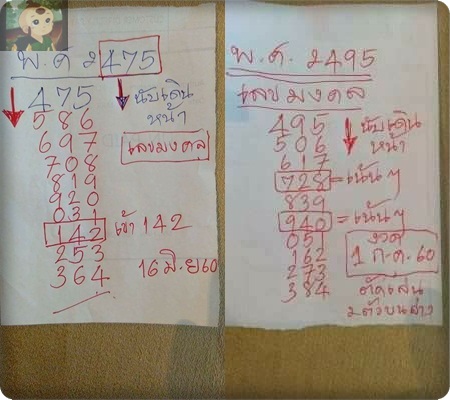 พ.ศ 2475
475 นับเดิน
586 หน้า
697 เลขมงคล
708
819
920
031
142 เข้า 142
253
364 16 มิ.ย 60
พ.ศ. 2495
เลขมงคล
495 นับเดิน
506 หน้า
617
728 = เน้นๆ
839
940 = เน้นๆ
051 งวด
162 1 ก.ค. 60
273
384 ตัดเล่น
2 ตัวบนล่าง